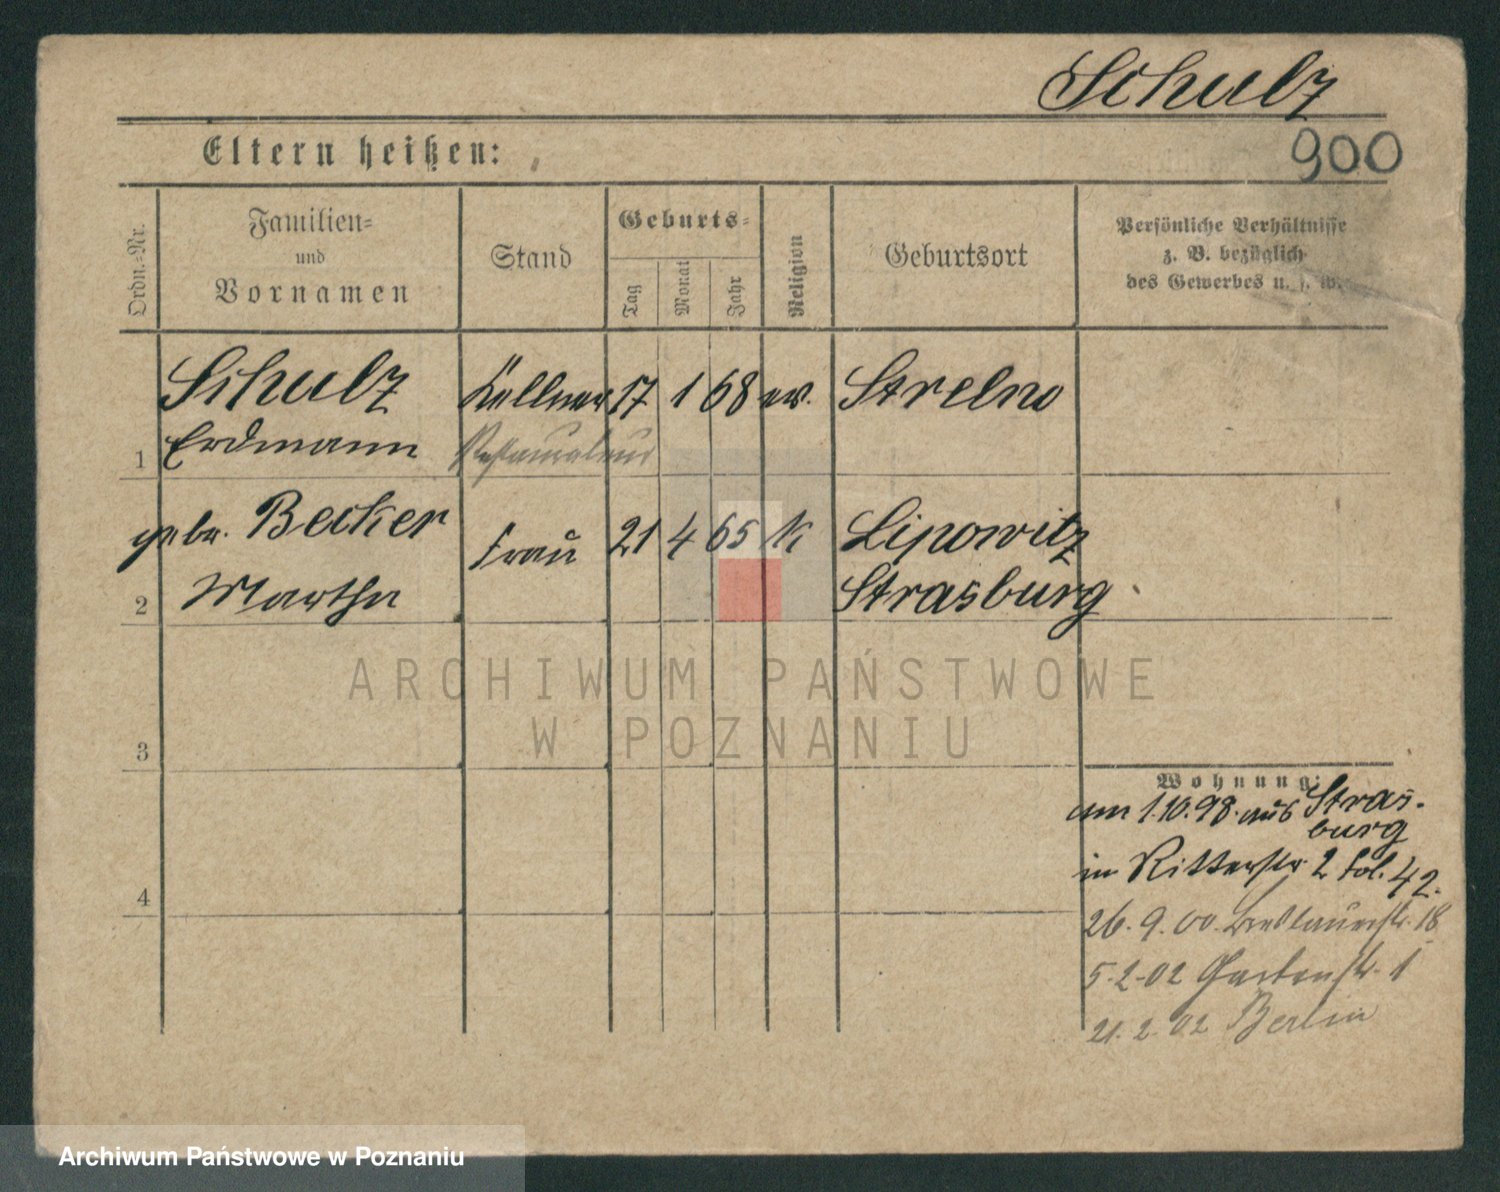 Schulz
900
Eltern heißen:
Ordn.-Nr.
Familien-
und
Vornamen
Stand
Geburts-
Tag
Monat
Jahr
Religion
Geburtsort
Persönliche Verhältnisse
z. B. bezüglich
des Gewerbes u. s. w.
1
Schulz
Erdmann
Kellner
Restaurateur
17
1
68
ev.
Strelno
2
gebr. Becker
Martha
Frau
21
4
65
k
Lipowitz
Strasburg
3
4
Wohnung:
am 1.10.98. aus Stras-
burg
in Ritterstr. 2 fol. 42.
26. 9. 00. Breslauerstr. 18
5.2.02 Gartenstr. 1
21. 2. 02 Berlin
ARCHIWUM PAŃSTWOWE
W POZNANIU
Archiwum Państwowe w Poznaniu